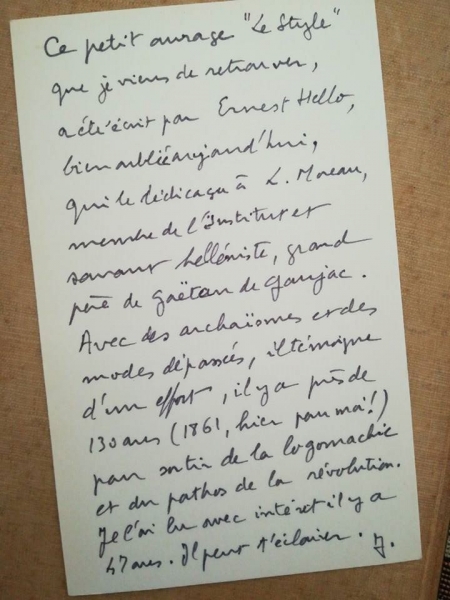 Ce petit ouvrage "Le Style"
que je viens de retrouver,
a été écrit par Ernest Hello,
bien oublié aujourd'hui,
qui le dédicaça à L. Moreau,
membre de l'Institut et
savant helléniste, grand
père de Gaëtan de Gaujac.
Avec des archaïsmes et des
modes dépassés, il témoigne
d'un effort, il y a près de
130 ans (1861, hier pour moi!)
pour sortir de la logomachie
et du pathos de la révolution.
Je l'ai lu avec intérêt il y a
47 ans. Il peut t'éclairer. J.